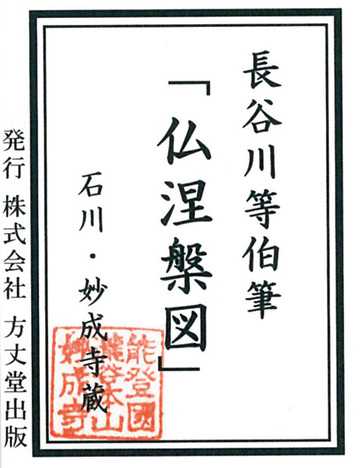 長谷川等伯筆
「仏涅槃図」
石川・妙成寺蔵
能登國
瀧谷本山
妙成寺
発行 株式会社 方丈堂出版